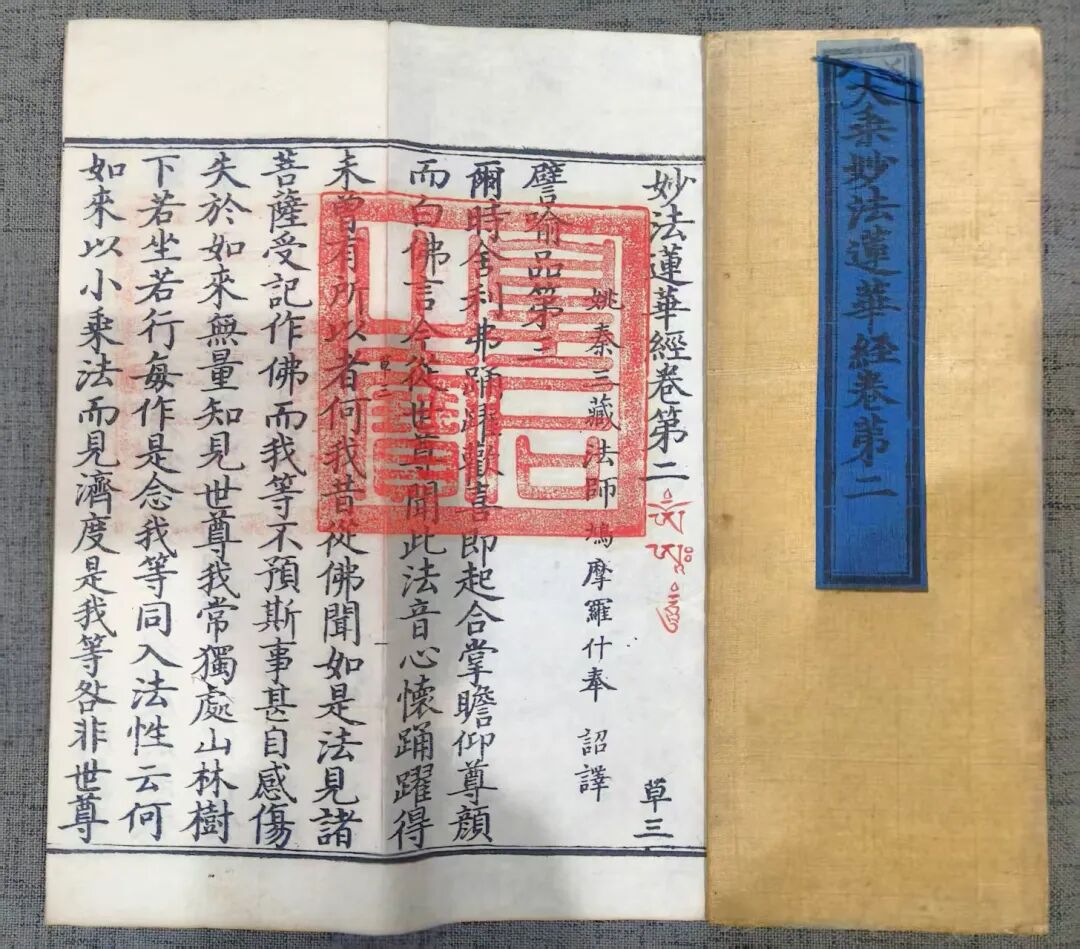 大乘妙法蓮華經卷第二
妙法蓮華經卷第二 草三
姚秦三藏法師鳩摩羅什奉 詔譯
譬喻品第三
爾時舍利弗踊躍歡喜即起合掌瞻仰尊顏
而白佛言今從世尊聞此法音心懷踊躍得
未曾有所以者何我昔從佛聞如是法見諸
菩薩受記作佛而我等不預斯事甚自感傷
失於如來無量知見世尊我常獨處山林樹
下若坐若行每作是念我等同入法性云何
如來以小乘法而見濟度是我等咎非世尊